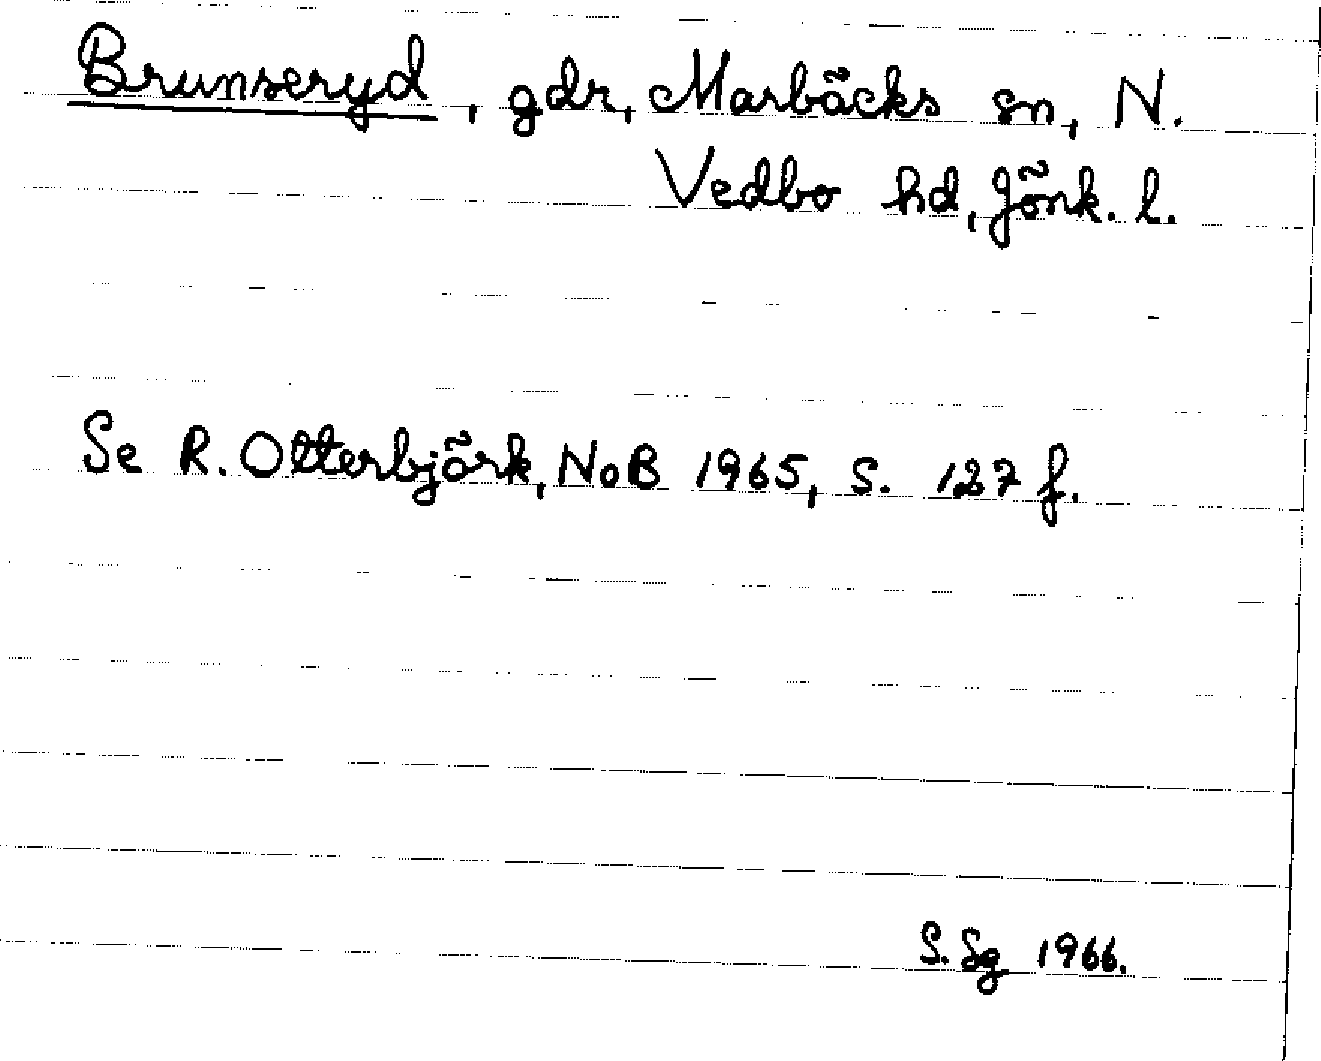 Brunseryd, gdr, Marbäcks sn, N.
Vedbo hd, Jönk. l.
Se R. Otterbjörk, NoB 1965, s. 127 f.
S. Sg 1966.